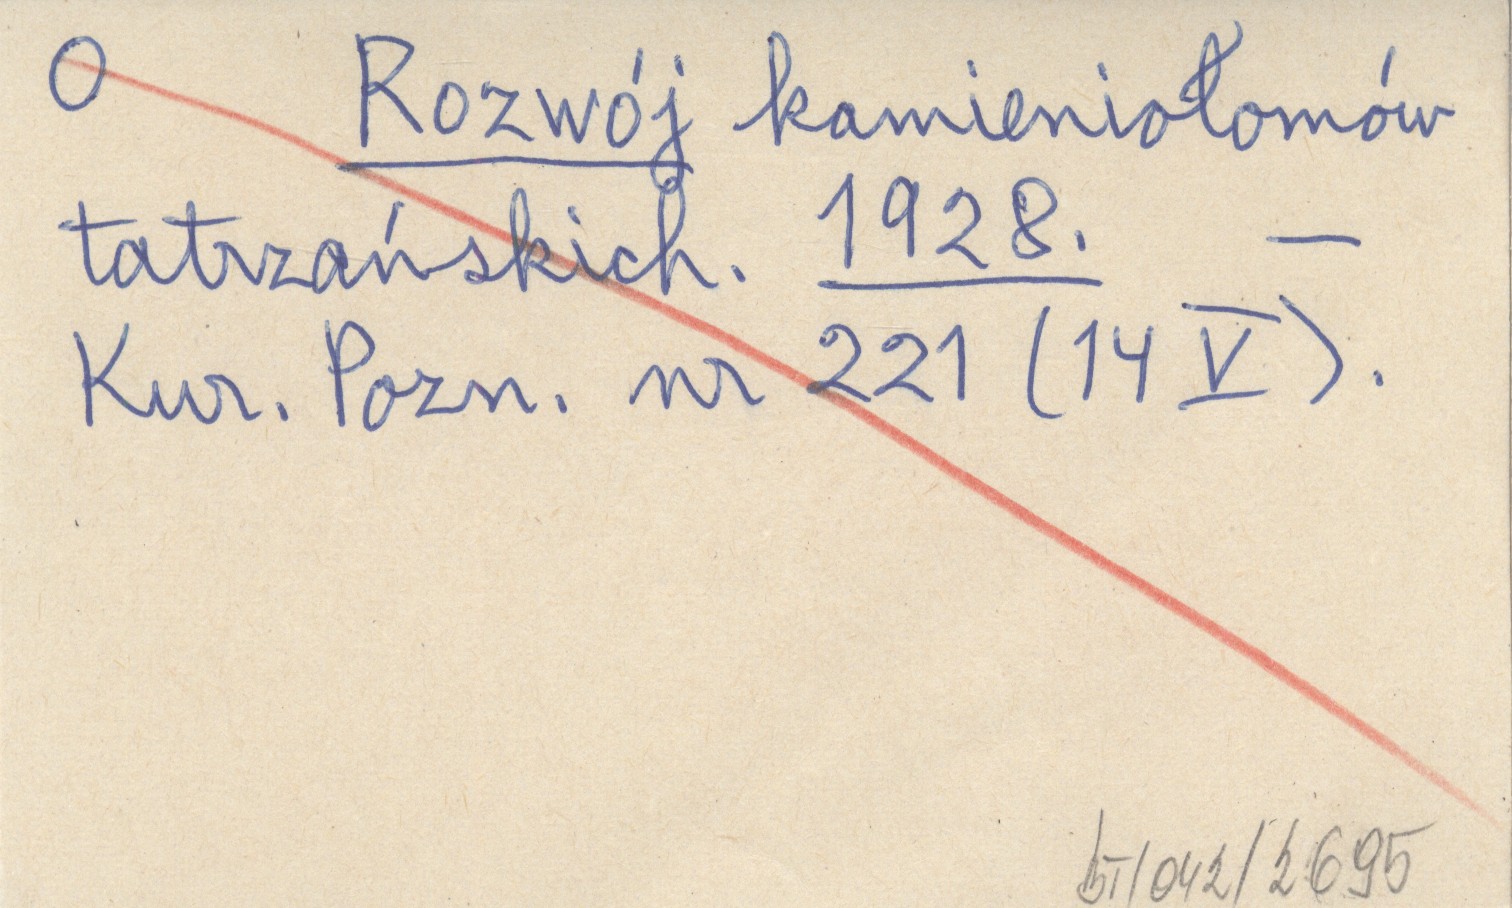 O Rozwój kamieniołomów
tatrzańskich. 1928. —
Kur. Pozn. nr 221 (14 V).
/042/2695